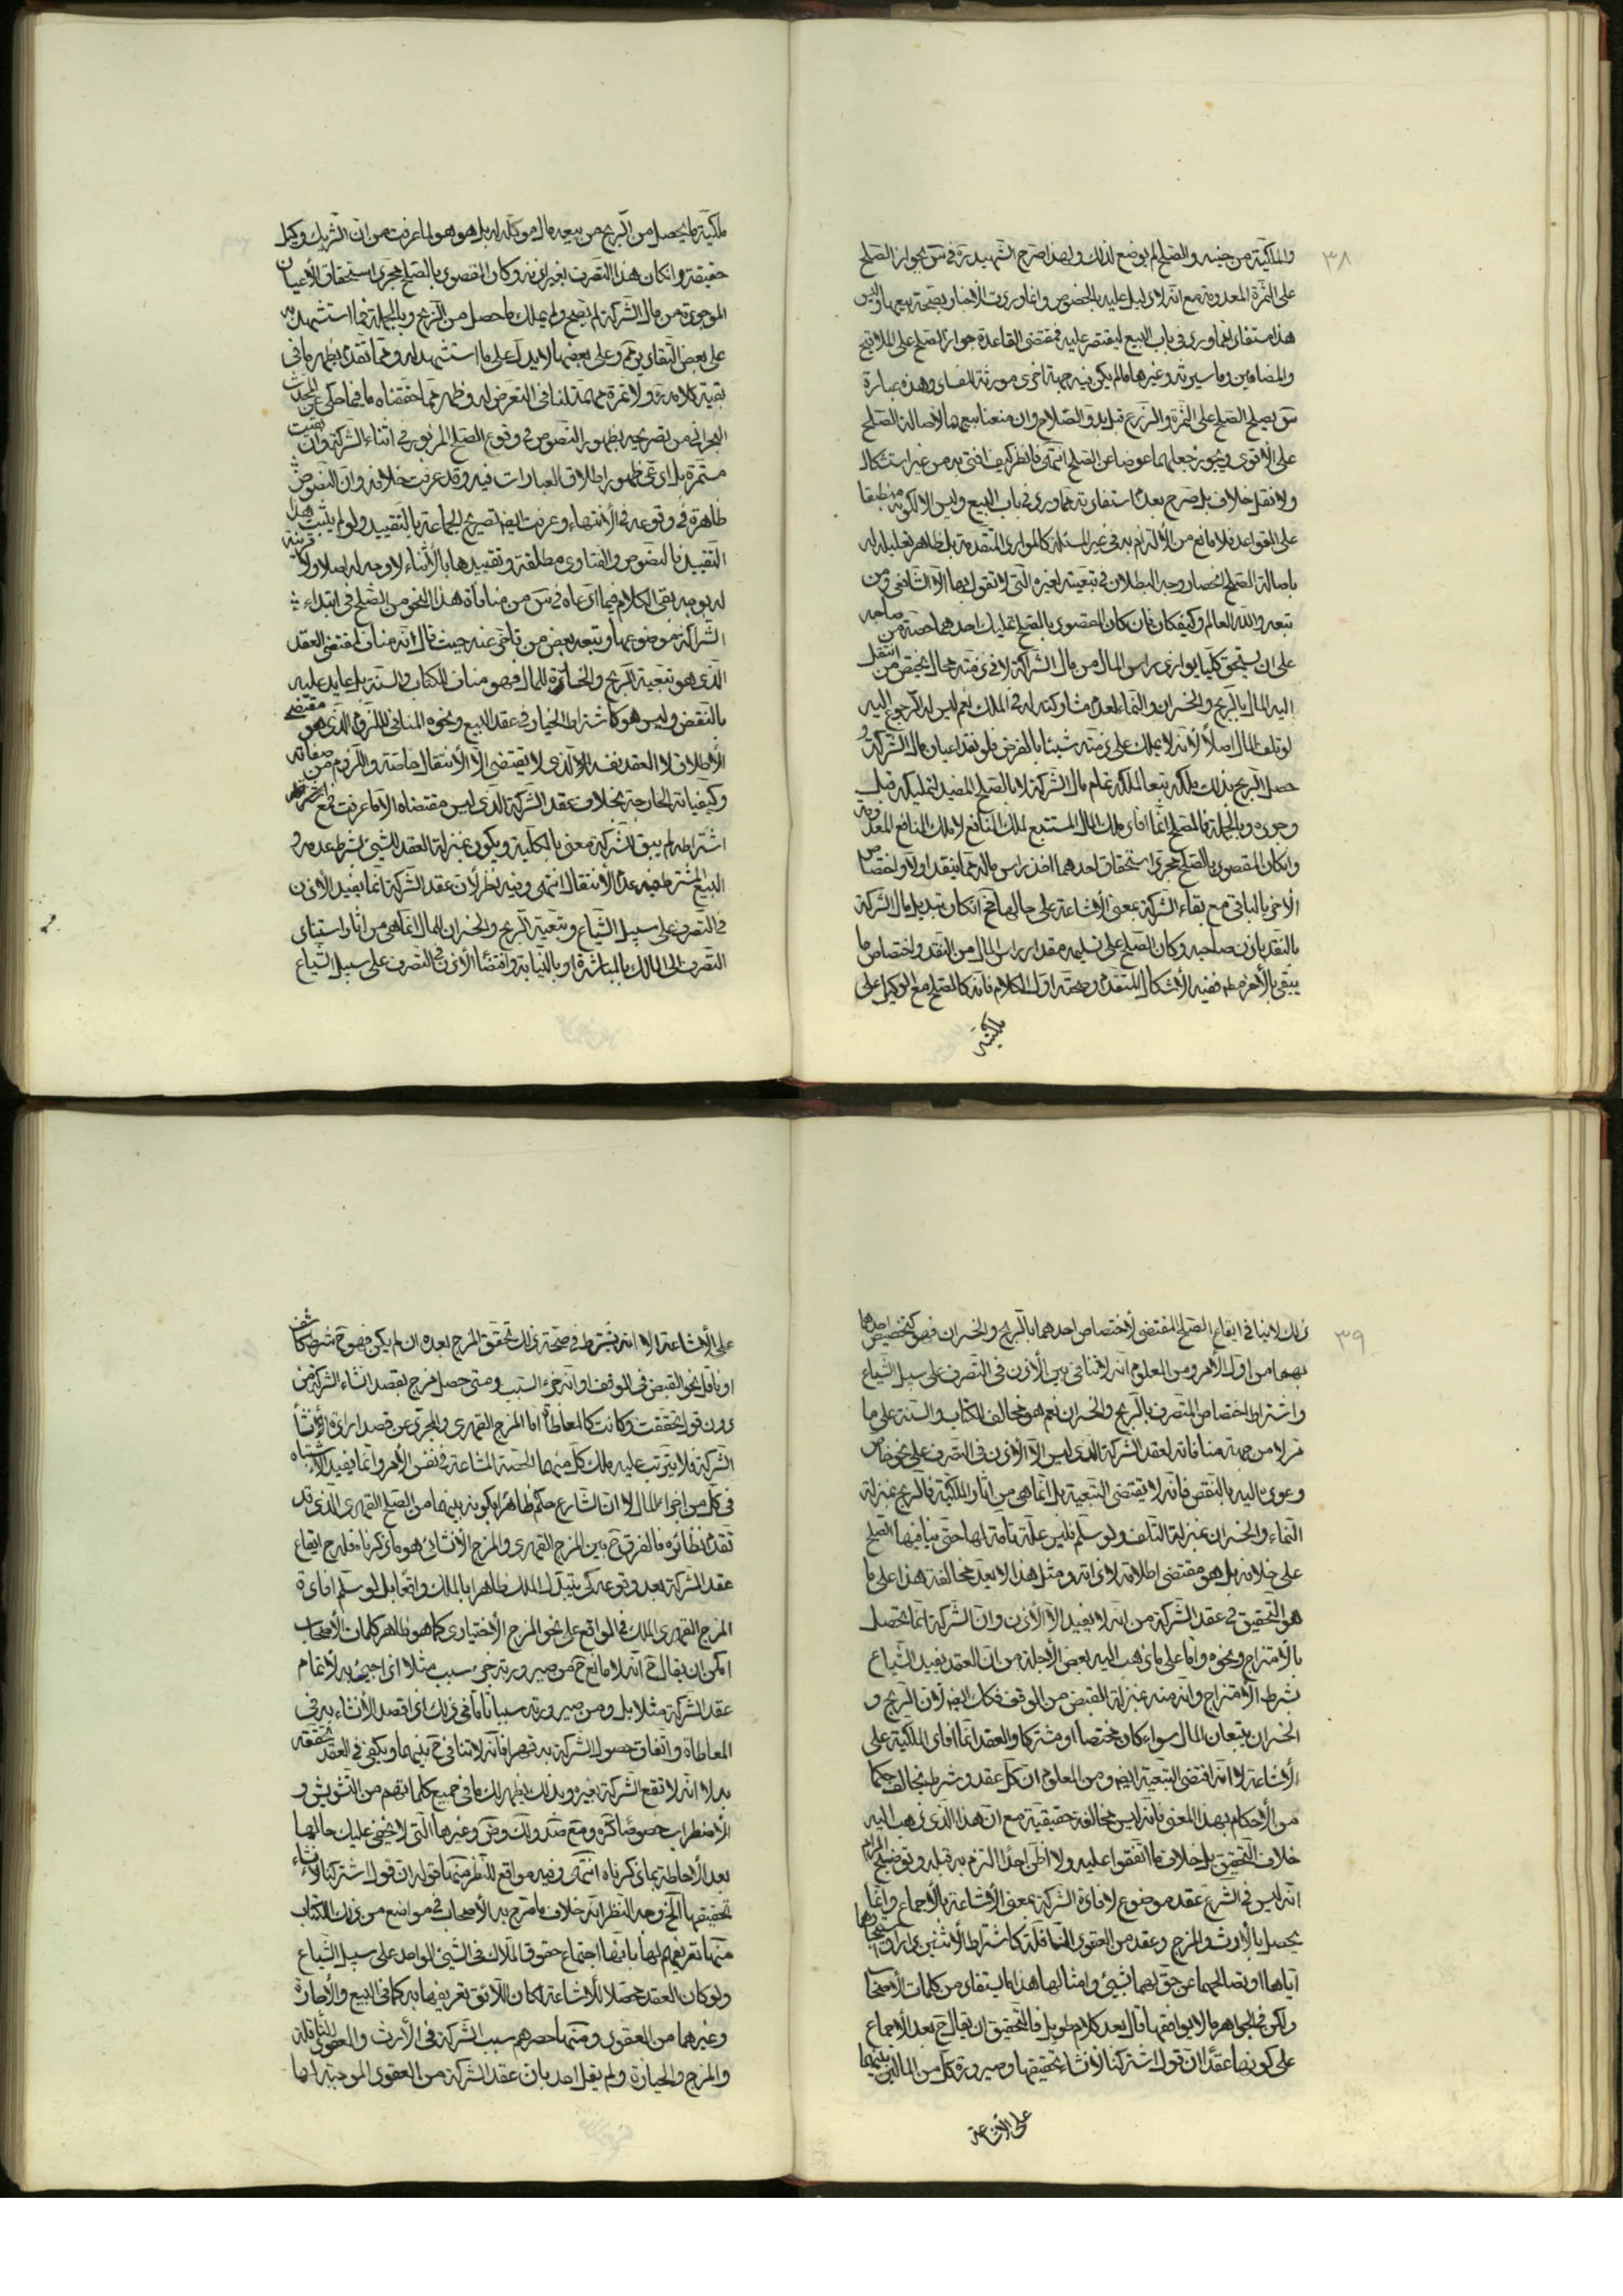 ٣٨
والملكية من حينه والصلح لم يوضع لذلك ولهذا صرح الشهيد ره في س بجواز الصلح
على الثمرة المعدومة مع انه لا دليل عليه بالخصوص وانما وردت الأخبار بصحة بيعها وليس
هذا مستفاد مما ورد في باب البيع ليقتصر عليه فمقتضى القاعدة جواز الصلح على الملاقيح
والمضامين وما سيرثه وغيرها ما لم يكن فيه جهة اخرى مورثة لفساد وهذه عبارة
س يصح الصلح على الثمرة والزرع قبل بدو الصلاح وان منعنا بيعهما لأصالة الصلح
على الأقوى ويجوز جعلهما عوضا عن الصلح انتهى فانظر كيف افتى به من غير استشكال
ولا نقل خلاف بل صرح بعدم استفادته مما ورد في باب البيع وليس الا لكونه منطبقا
على القواعد فلا مانع من الألتزام به في غير المسئلة كالموارد المتقدمة بل ظاهر تعليله له
باصالة الصلح انحصار وجه البطلان في تبعيته لغيره التي لا نقول بها الا الشافعي ومن
تبعه والله العالم وكيفكان فان كان المقصود بالصلح تمليك احدهما حصته من صاحبه
على ان يستحق كليا يوازي راس المال من مال الشراكة لا في ذمته مح اختص من انتقل
اليه المال بالربح والخسران والنماء لعدم مشاركته له في الملك نعم ليس له الرجوع اليه
لو تلف المال اصلا لأنه لا يملك على ذمته شيئا بالفرض فلو نقد اعيان مال الشركة و
حصل الربح بذلك ملكه تبعا لملكه تمام مال الشركة لا بالصلح المفيد لتمليكه قبل
وجوده وبالجملة فالصلح انما افاد ملك المال المستتبع لملك المنافع لا ملك المنافع المعدومة
وانكان المقصود بالصلح مجرد استحقاق احدهما اخذ راس ماله مما ينقد اولا واختصاص
الأخر بالباقي مع بقاء الشركة بمعنى الأشاعة على حالها مح انكان تبديل مال الشركة
بالنقد باذن صاحبه وكان الصلح على تسليمه مقدار راس المال من النقد واختصاص ما
يبقى بالأخر مط ففيه الأشكال المتقدم وصحته اول الكلام فانه كالصلح مع الوكيل على
ملكية
ملكية ما يحصل من الربح من بيعه مال موكله له بل هو هو لما عرفت من ان الشريك وكيل
حقيقة وانكان هذا التصرف بغير اذنه وكان المقصود بالصلح مجرد استحقاق الأعيان
الموجودة من مال الشركة لم يصح ولم يملك ما حصل من الربح وبالجملة فما استشهد به
على بعض التقادير تم وعلى بعضها لا يدل على ما استشهد له ومما تقدم يظهر ما في
بقية كلامه ره ولا ثمرة مهمة لنا في التعرض له وظهر مما حققناه ما فيما حكى عن المحدث
البحراني من تصريحه بظهور النصوص في وقوع الصلح المزبور في اثناء الشركة وان بقيت
مستمرة بل ادعى ظهور اطلاق العبارات فيه وقد عرفت خلافه وان النصوص
ظاهرة في وقوعه في الأنتهاء وعرفت ايضا تصريح الجماعة بالتقييد ولو لم يثبت هذا
التقييد فالنصوص والفتاوى مطلقة وتقييدها بالأثناء لا وجه له اصلا ولا قرينة
له بوجه بقى الكلام فيما ادعاه في س من منافاة هذا النحو من الصلح في ابتداء
الشراكة موضوعها وتبعه بعض من تاخر عنه حيث قال انه مناف لمقتضى العقد
الذي هو تبعية الربح والخسارة للمال فهو مناف للكتاب والسنة بل عايد عليه
بالنقض وليس هو كاشتراط الخيار في عقد البيع ونحوه المنافي للزوم الذي هو مقتضى
الأطلاق لا العقد بنفسه الذي لا يقتضى الا الأنتقال خاصة واللزوم من صفاته
وكيفياته الخارجة بخلاف عقد الشركة الذي ليس مقتضاه الا ما عرفت فمع
اشتراطه لم يبق للشركة معنى بالكلية ويكون بمنزلة العقد للشيئ بشرط عدمه و
البيع المشترط فيه عدم الأنتقال انتهى وفيه نظر لأن عقد الشركة انما يفيد الأذن
في التصرف على سبيل الشياع وتبعية الربح والخسران للمال انما هي من اثار استناد
التصرف الى المالك بالمباشرة او بالنيابة واقتضاء الأذن في التصرف على سبيل الشياع
٣٩
ذلك لا ينافي ايقاع الصلح المقتضى لأختصاص احدهما بالربح والخسران فهو كتخصيص احدهما
بهما من اول الأمر ومن المعلوم انه لا تنافي بين الأذن في التصرف على سبيل الشياع
واشتراط اختصاص المتصرف بالربح والخسران نعم هو مخالف للكتاب والسنة على ما
مر لا من جهة منافاته لعقد الشركة الذي ليس الا الأذن في التصرف على نحو خاص
وعوده اليه بالنقض فانه لا يقتضى التبعية بل انما هي من اثار الملكية فالربح بمنزلة
النماء والخسران بمنزلة التلف ولو سلم فليس علة تامة لها حتى ينافيها الصلح
على خلافه بل هو مقتضى اطلاقه لا ذاته ومثل هذا لا يعد مخالفة هذا على ما
هو التحقيق في عقد الشركة من انه لا يفيد الا الأذن وان الشركة انما تحصل
بالأمتزاج ونحوه واما على ما ذهب اليه بعض الأجلة من ان العقد يفيد الشياع
بشرط الأمتزاج وانه منه بمنزلة القبض من الوقف فكك ايضا لأن الربح و
الخسران يتبعان المال سواء كان مختصا او مشتركا والعقد انما افاد الملكية على
الأشاعة لا انه اقتضى التبعية ايضا ومن المعلوم ان كل عقد وشرط يخالف حكما
من الأحكام بهذا المعنى فانه ليس مخالفة حقيقية مع ان هذا الذي ذهب اليه
خلاف التحقيق بل خلاف ما اتفقوا عليه ولا اظن احدا التزم به قبله وتوضيح المرام
انه ليس في الشرع عقد موضوع لافادة الشركة بمعنى الأشاعة بالأجماع وانما
يحصل بالأرث والمزج وعقد من العقود الناقلة كاشتراط الأثنين دارا واستيجارهما
اياها او تصالحهما عن حق لهما بشيئ وامثالها هذا ما يستفاد من كلمات الأصحاب
ولكن في الجواهر ما لا يوافقها قال بعد كلام طويل فالتحقيق ان يقال ح بعد الأجماع
على كونها عقدا ان قول اشتركنا لأنشاء تحقيقها وصيرورة كل من المالين بينهما
على الأشاعة
على الأشاعة الا انه يشترط في صحة ذلك تحقق المزج بعده ان لم يكن فهو ح شرط كاشف
او ناقل نحو القبض في الوقف او انه جزء السبب ومتى حصل مزج بقصد انشاء الشركة من
دون قول تحققت وكانت كالمعاطاة اما المزج القهري والمجرد عن قصد ارادة انشاء
الشركة فلا يترتب عليه ملك كل منهما الحصة المشاعة في نفس الأمر وانما يفيد الأشتباه
في كل من اجزاء المال الا ان الشارع حكم ظاهرا بكونه بينهما من الصلح القهري الذي قد
تقدم نظائره فالفرق ح بين المزج القهري والمزج الأنشائي هو ما ذكرناه فله ح ايقاع
عقد الشركة بعد وقوعه كي يتبدل الملك ظاهرا بالملك واقعا بل لو سلم افادة
المزج القهري الملك في الواقع على نحو المزج الأختياري كما هو ظاهر كلمات الأصحاب
امكن ان يقال ح انه لا مانع ح من صيرورته جزء سبب مثلا اذا جيئ به لأتمام
عقد الشركة مثلا بل ومن صيرورته سببا تاما في ذلك اذا قصد الأنشاء به في
المعاطاة واتفاق حصول الشركة به قهرا فانه لا تنافي ح بينهما ويكفي في العقد تحققه
به لا انه لا تقع الشركة بغيره وبذلك يظهر لك ما في جميع كلماتهم من التشويش و
الأضطراب خصوصا كره ومع صد ولك وض وغيرها التي لا يخفى عليك حالها
بعد الأحاطة بما ذكرناه انتهى وفيه مواقع للنظر منها قوله ان قول اشتركنا لأنشاء
تحقيقها الخ وجه النظر انه خلاف ما صرح به الأصحاب في مواضع من ذلك الكتاب
منها تعريفهم لها بانها اجتماع حقوق الملاك في الشيئ الواحد على سبيل الشياع
ولو كان العقد محصلا للأشاعة لكان اللائق تعريفها به كما في البيع والأجارة
وغيرهما من العقود ومنها حصرهم سبب الشركة في الأرث والعقود الناقلة
والمزج والحيازة ولم يقل احد بان عقد الشركة من العقود الموجبة لها